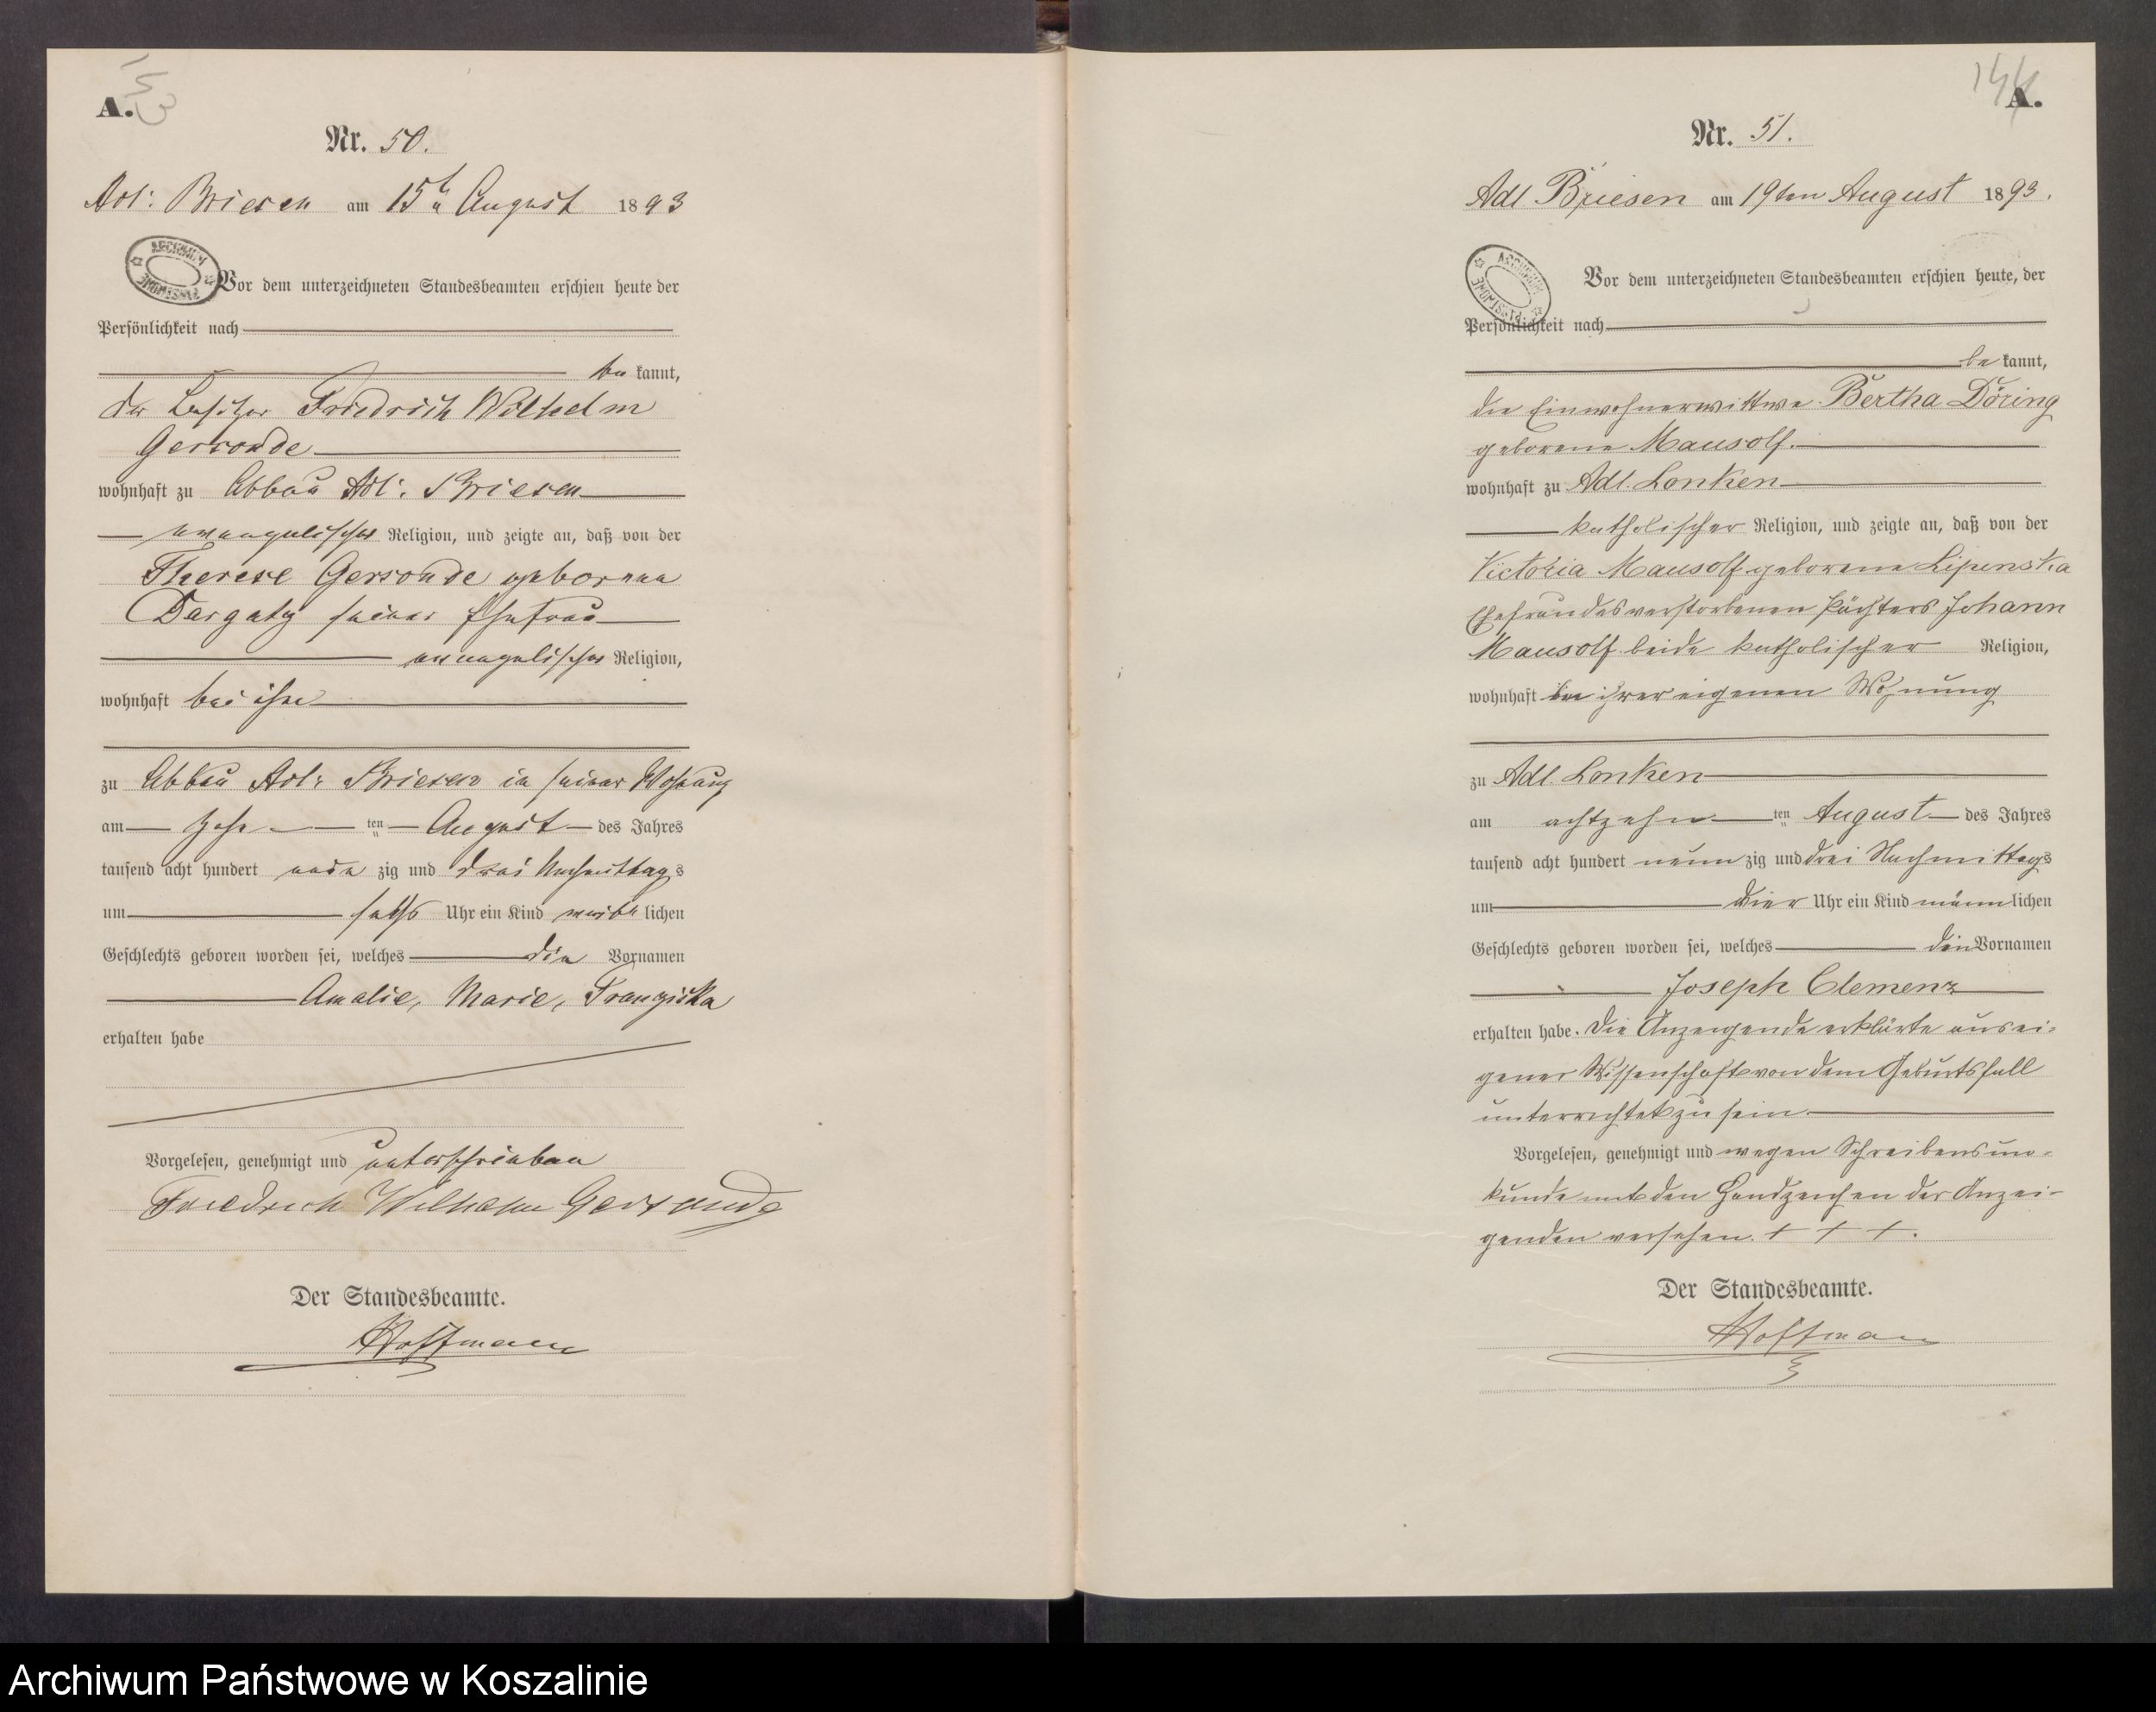 A.
153
Nr. 50.
Adl: Briesen am 15ten August 1893
ARCHIWUM PAŃSTWOWE
Vor dem unterzeichneten Standesbeamten erschien heute der
Persönlichkeit nach
be kannt,
der Besitzer Friedrich Wilhelm
Gersonde
wohnhaft zu Abbau Adl: Briesen
evangelischer Religion, und zeigte an, daß von der
Therese Gersonde geborene
Dargatz seiner Ehefrau
evangelischer Religion,
wohnhaft bei ihm
zu Abbau Adl: Briesen in seiner Wohnung
am zehn ten August des Jahres
tausend acht hundert neun zig und drei Nachmittags
um sechs Uhr ein Kind weib lichen
Geschlechts geboren worden sei, welches die Vornamen
Amalie, Marie, Franziska
erhalten habe
Vorgelesen, genehmigt und unterschrieben
Friedrich Wilhelm Gersonde
Der Standesbeamte.
Hoffmann
144
A.
Nr. 51.
Adl Briesen am 19ten August 1893.
ARCHIWUM PAŃSTWOWE
Vor dem unterzeichneten Standesbeamten erschien heute, der
Persönlichkeit nach
be kannt,
die Einwohnerwittwe Bertha Döring
geborene Mausolf.
wohnhaft zu Adl. Lonken
katholischer Religion, und zeigte an, daß von der
Victoria Mausolf geborene Lipinska
Ehefrau des verstorbenen Pächters Johann
Mausolf beide katholischer Religion,
wohnhaft in ihrer eigenen Wohnung
zu Adl. Lonken
am achtzehn ten August des Jahres
tausend acht hundert neun zig und drei Nachmittags
um vier Uhr ein Kind männ lichen
Geschlechts geboren worden sei, welches die Vornamen
Joseph Clemenz
erhalten habe. Die Anzeigende erklärte aus ei-
gener Wissenschaft von dem Geburtsfall
unterrichtet zu sein.
Vorgelesen, genehmigt und wegen Schreibensun-
kunde mit den Handzeichen der Anzei-
genden versehen. + + +.
Der Standesbeamte.
Hoffmann
Archiwum Państwowe w Koszalinie